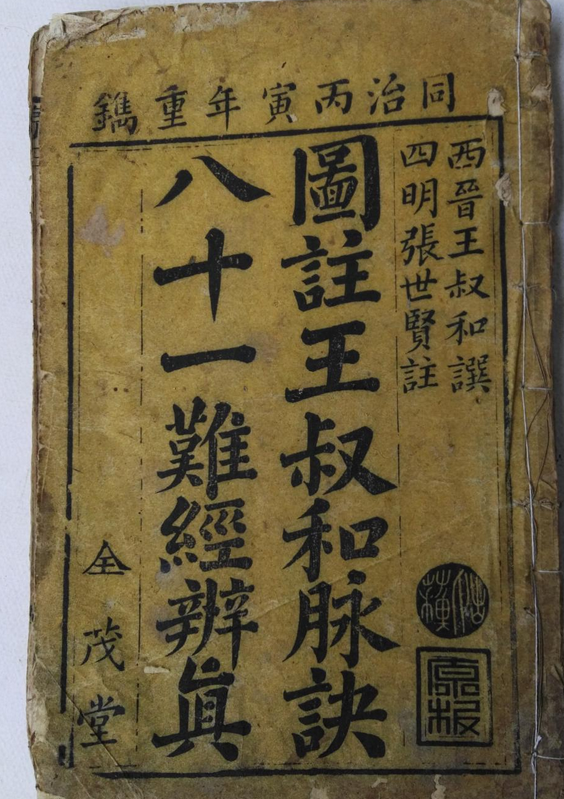 同治丙寅年重鐫
西晉王叔和譔
四明張世賢註
圖註王叔和脉訣
八十一難經辨眞
仝茂堂
原板